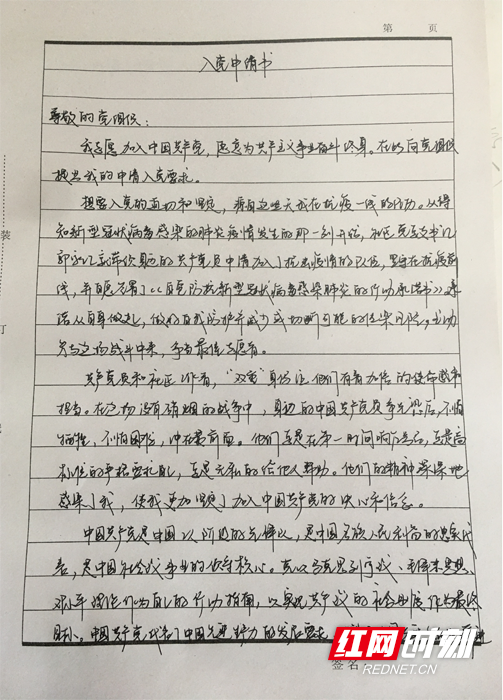 第 页
入党申请书
尊敬的党组织：
我志愿加入中国共产党，愿意为共产主义事业奋斗终身。在此向党组织
提出我的申请入党要求。
想要入党的迫切和坚定，源自这些天我在抗疫一线的行动。从得
知新型冠状病毒感染的肺炎疫情发生的那一刻开始，社区党支部书记
共产党员申请加入了抗击疫情的队伍，坚守在抗疫前
线，并自愿签署了《自觉防抗新型冠状病毒感染肺炎的行动承诺书》
诺从自身做起，做好自我防护并减少或切断可能的传染风险，主动
参与这场战斗中来，争当最佳志愿者。
共产党员和社区工作者，“双重”身份让他们有着加倍的使命感和
担当。在这场没有硝烟的战争中，身边的中国共产党员争先恐后，不怕
牺牲，不怕困难，冲在最前面。他们总是在第一时间响应号召，总是高
标准的严格要求自己，总是无私的给他人帮助。他们的精神深深地
感染了我，使我更加坚定了加入中国共产党的决心和信念。
中国共产党是中国工人阶级的先锋队，是中国各族人民利益的忠实代
表，是中国社会主义事业的领导核心。党以马克思列宁主义、毛泽东思想、
邓小平理论作为自己的行动指南，以实现共产主义的社会制度作为最终
目标。中国共产党代表了中国先进生产力的发展要求
装
订
签名
红网时刻
REDNET.CN